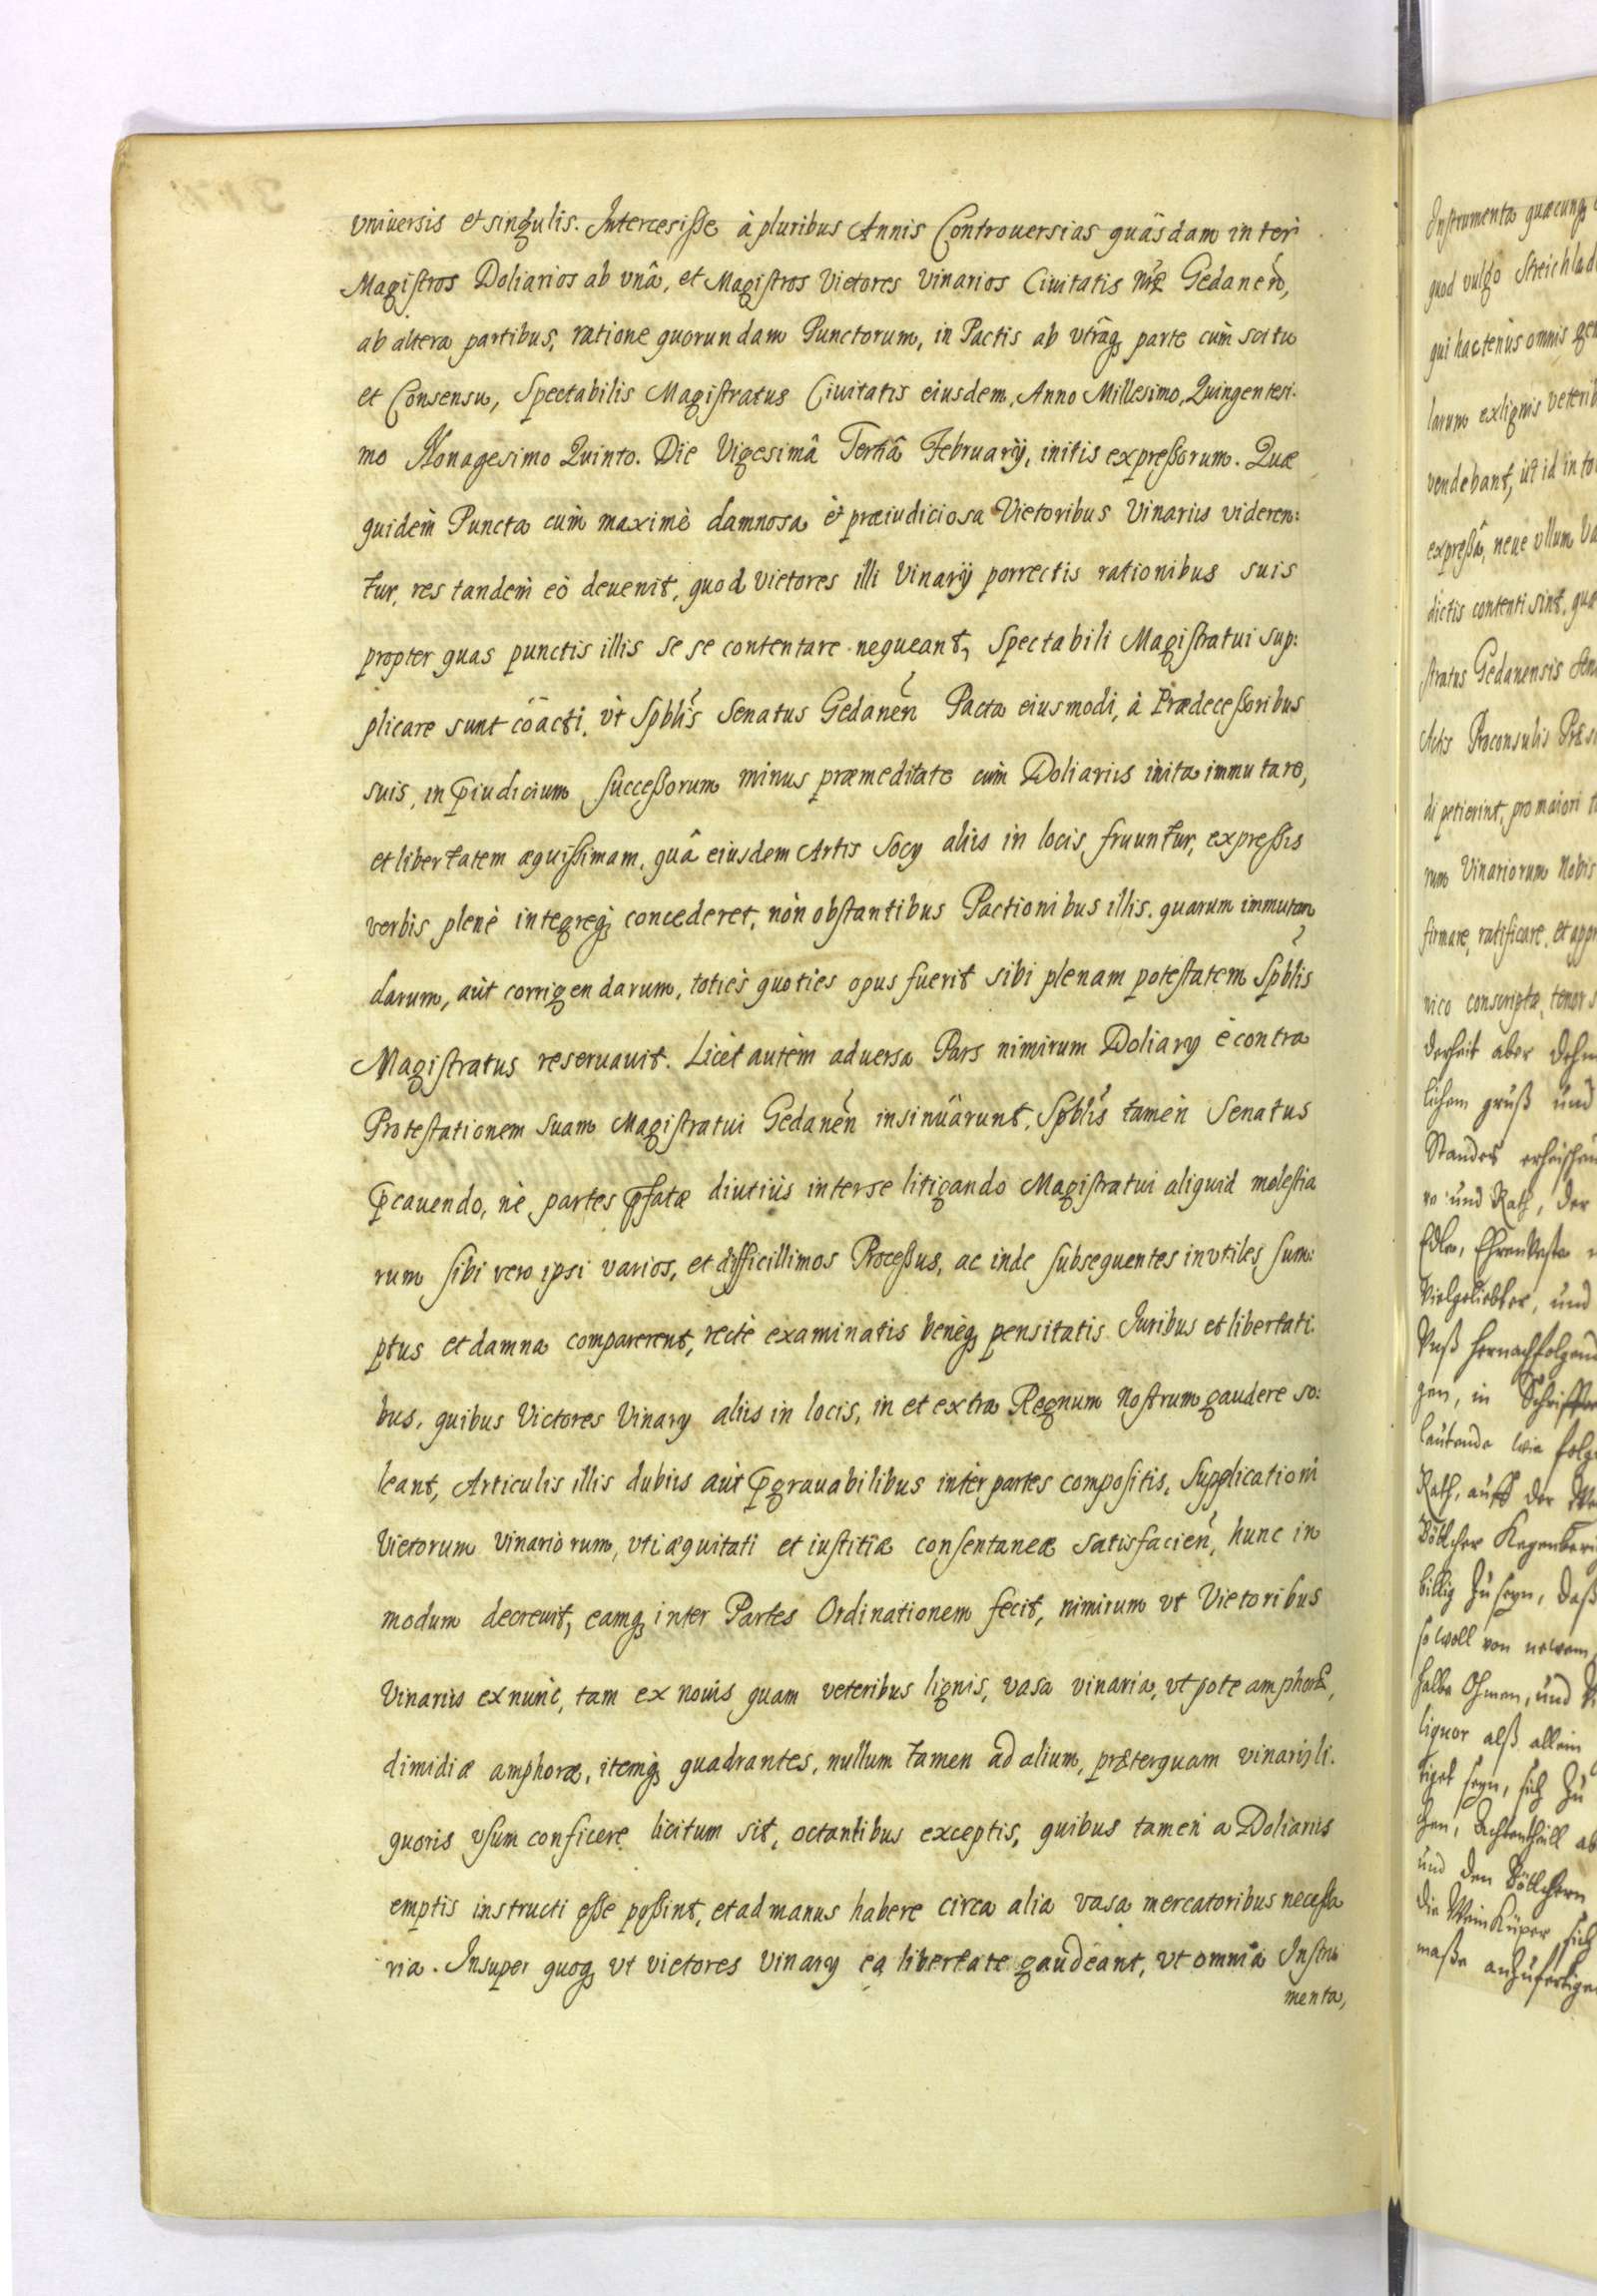 vniuersis et singulis. Intercesisse à pluribus Annis Controuersias quâsdam inter
Magistros Doliarios ab vnâ, et Magistros Vietores Vinarios Ciuitatis nræ Gedanen,
ab altera partibus, ratione quorundam Punctorum, in Pactis ab vtrâq parte cum scitu
et Consensu, Spectabilis Magistratus Ciuitatis eiusdem, Anno Millesimo, Quingentesi-
mo Nonagesimo Quinto. Die Vigesimâ Tertiâ Februarij, initis expressorum. Quæ
quidem Puncta cum maximè damnosa et præiudiciosa Vietoribus Vinarijs videren:
tur, res tandem eò deuenit, quod vietores illi Vinarij porrectis rationibus suis
propter quas punctis illis se se contentare nequeant, Spectabili Magistratui sup:
plicare sunt coacti, vt Spblis Senatus Gedanen Pacta eiusmodi, à Prædecessoribus
suis, in piudicium successorum minus præmeditate cum Doliarijs inita immutare,
et libertatem æquissimam, quâ eiusdem Artis Socij alijs in locis fruuntur, expressis
verbis plenè integreq concederet, non obstantibus Pactionibus illis. quarum immutan
darum, aut corrigendarum, toties quoties opus fuerit sibi plenam potestatem Spblis
Magistratus reseruauit. Licet autem aduersa Pars nimirum Doliarij è contra
Protestationem suam Magistratui Gedanen insinuarunt, Spblis tamen Senatus
pcauendo, ne partes pfatæ diutius interse litigando Magistratui aliquid molestia
rum sibi vero ipsi varios, et difficillimos Processus, ac inde subsequentes invtiles sum:
ptus et damna compararent, recte examinatis beneq pensitatis Juribus et libertati:
bus, quibus Victores Vinarij alijs in locis, in et extra Regnum nostrum gaudere so:
leant, Articulis illis dubijs aut pgrauabilibus inter partes compositis, Supplicationi
Vietorum Vinariorum, vti æquitati et iustitiæ consentaneæ satisfacien, hunc in
modum decreuit, eamq inter Partes Ordinationem fecit, nimirum vt Vietoribus
Vinarijs ex nunc, tam ex nouis quam veteribus lignis, vasa vinaria, vt pote amphoræ,
dimidiæ amphoræ, itemq quadrantes, nullum tamen ad alium, præterquam vinarij li:
quoris vsum conficere licitum sit, octantibus exceptis, quibus tamen a Doliarijs
emptis instructi esse possint, et ad manus habere circa alia vasa mercatoribus necessa
ria. Insuper quoq vt vietores Vinarij ea libertate gaudeant, vt omnia Instru
menta,
Instrumenta quæcunq
quod vulgo Streichlad
qui hactenus omnis gen
larum ex lignis veterib
vendebant, ut id in to
expressâ, neue vllum va
dictis contenti sint, quæ
stratus Gedanensis
Actis Proconsulis
di petierint, pro maiori
rum Vinariorum Nobis
firmare, ratificare, et app
nico conscripta, tenor
derheit aber
lichem gruß und
Standes
und Rath, der
Edle, Ehrenveste
Vielgeliebter, und
hernachfolgend
gen, in Schrifften
lautende wie folg
Rath, auff der
Böttcher
billig zu seyn, daß
so woll von newem
halbe Ohmen, und
liquor alß allein
seyn, sich zu
Achtentheill ab
und den Böttchern
die WeinKüper sich
maße anzufertigen